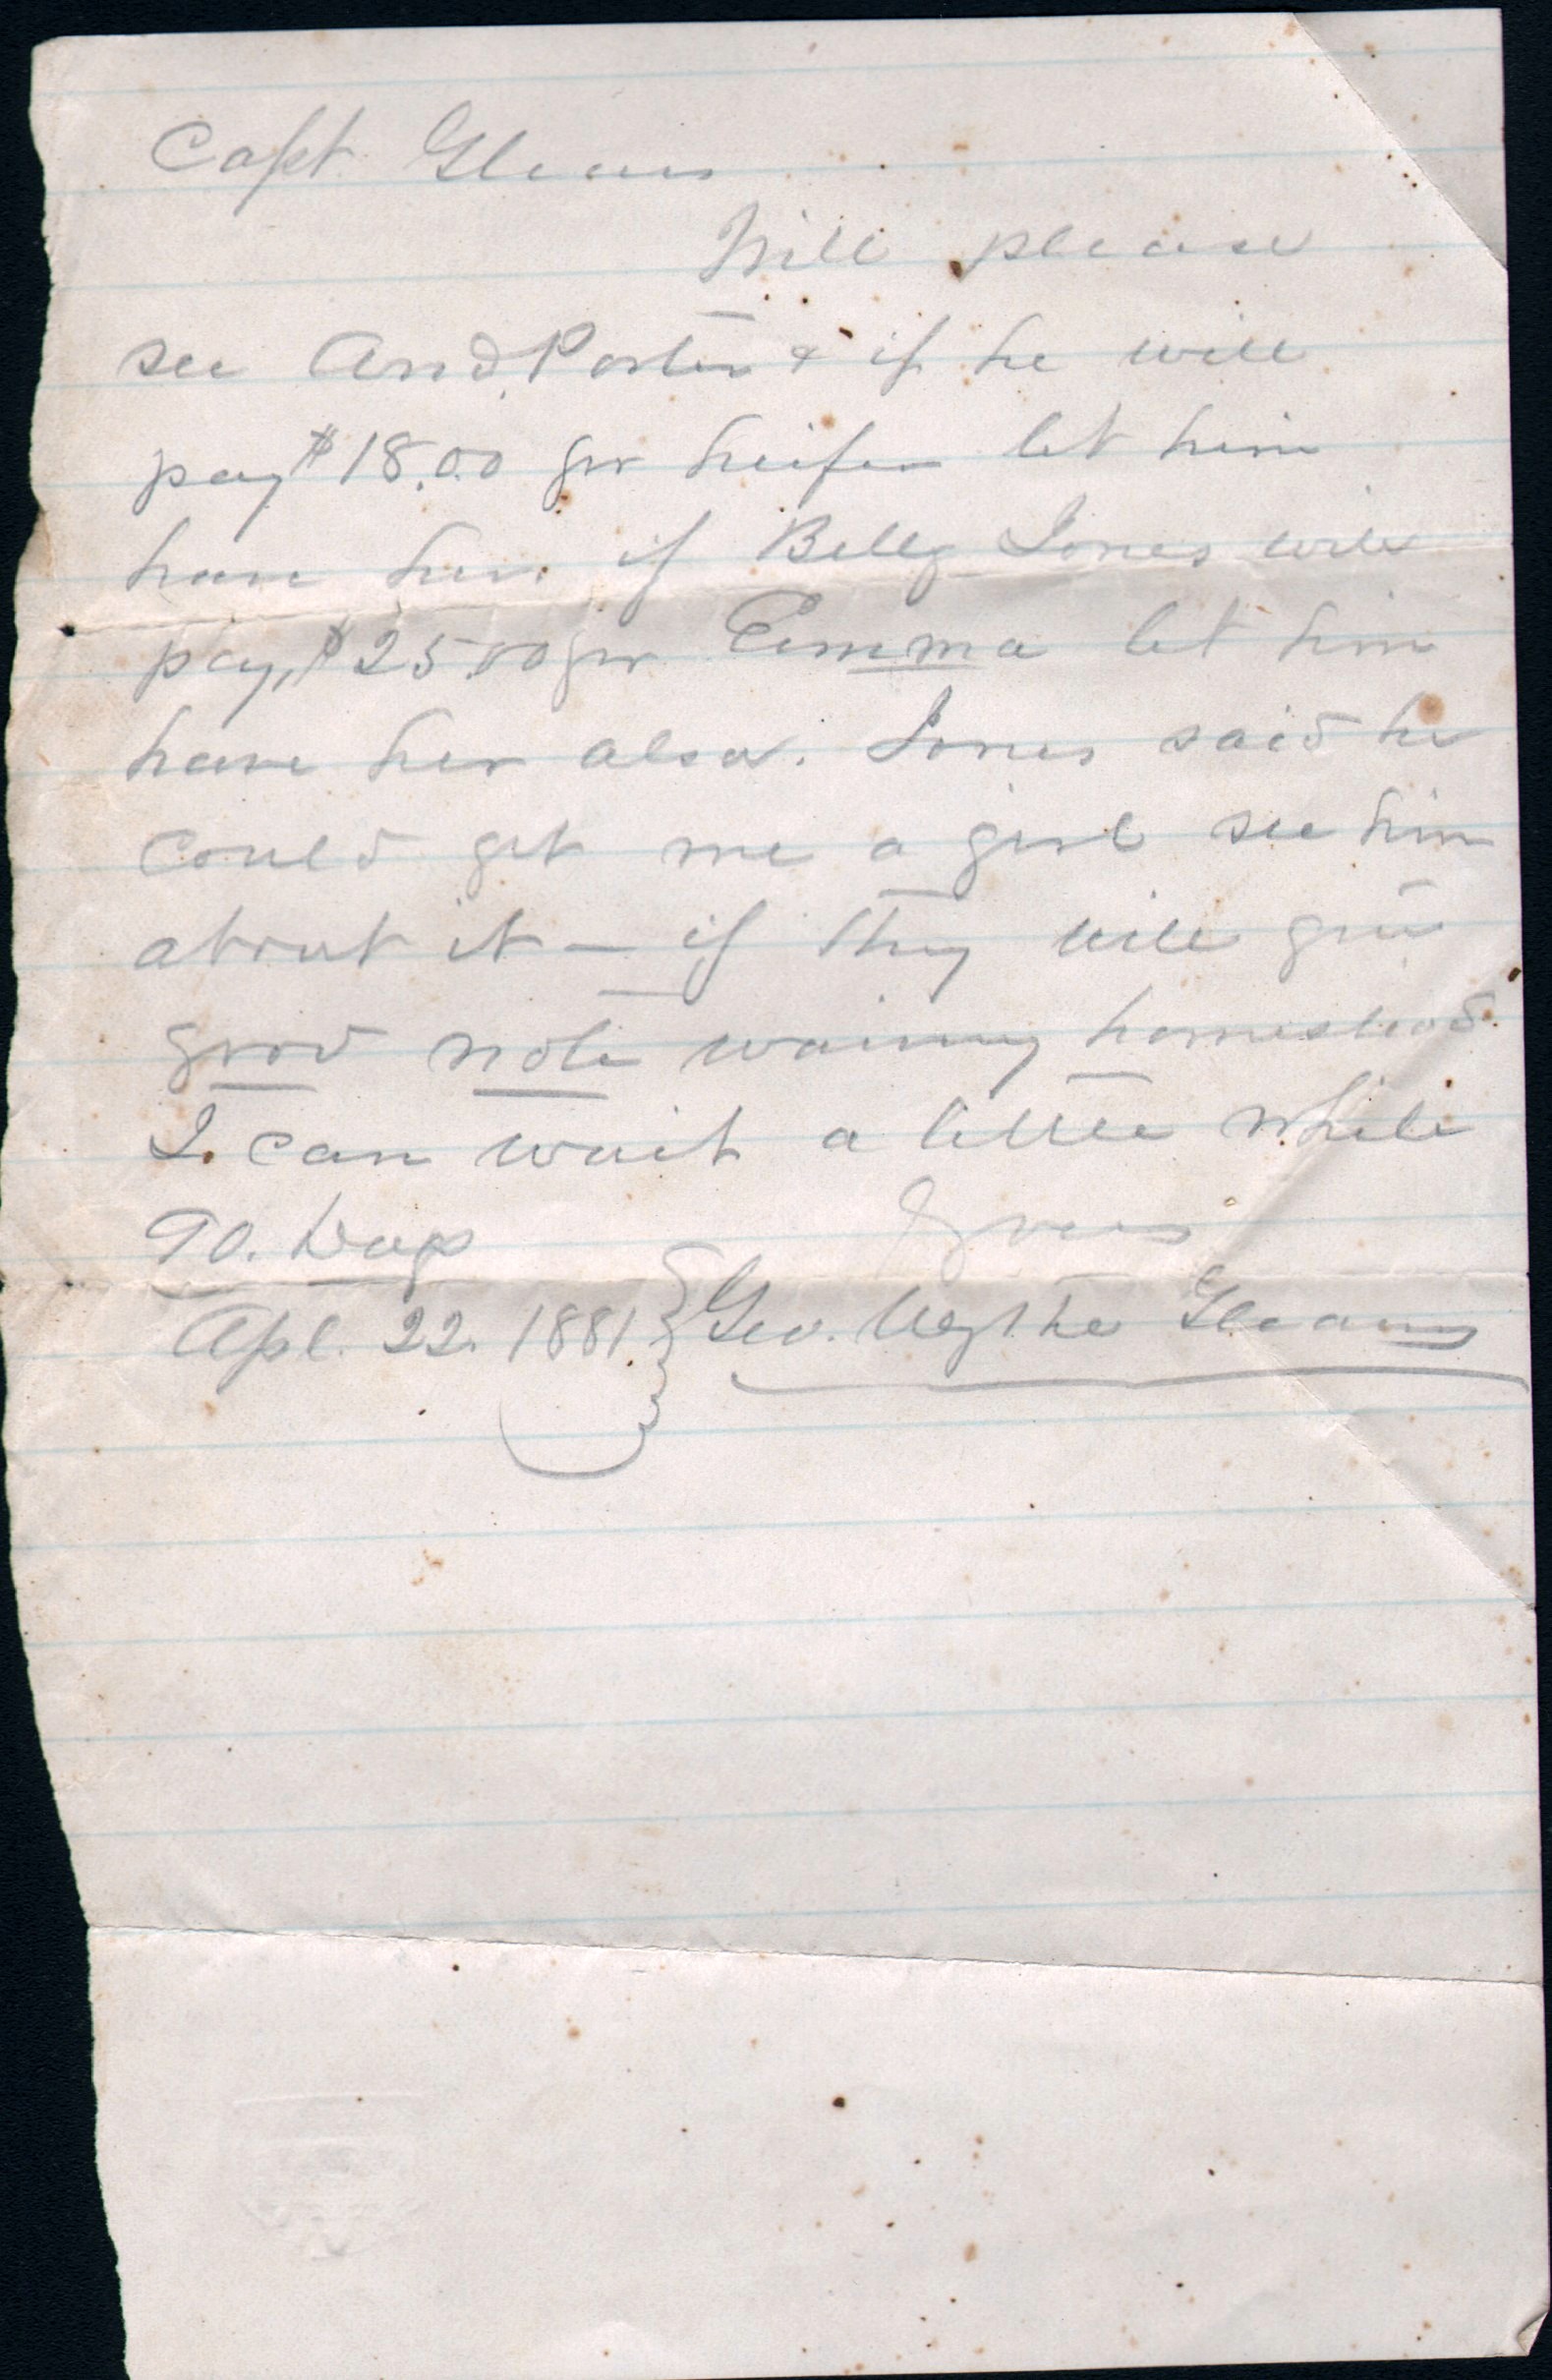 Capt. Gleaves
Will please
see And Porter & if he will
pay $18.00 for heifer let him
have her. if Billy Jones will
pay $25.00 for Emma let him
have her also. Jones said he
could get me a girl see him
about it — if they will give
good note waiving homestead.
I can wait a little while
90. Days Yours
Apl. 22. 1881 Geo. Wythe Gleaves